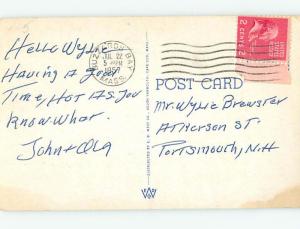 Hello Wylie
Having A Good
Time, Hot As You
Know What.
John + Ola
BUZZARDS BAY
JUL 22
5 PM
1952
MASS.
2 CENTS 2
POST CARD
Mr. Wylie Brewster
Jefferson St.
Portsmouth, N.H